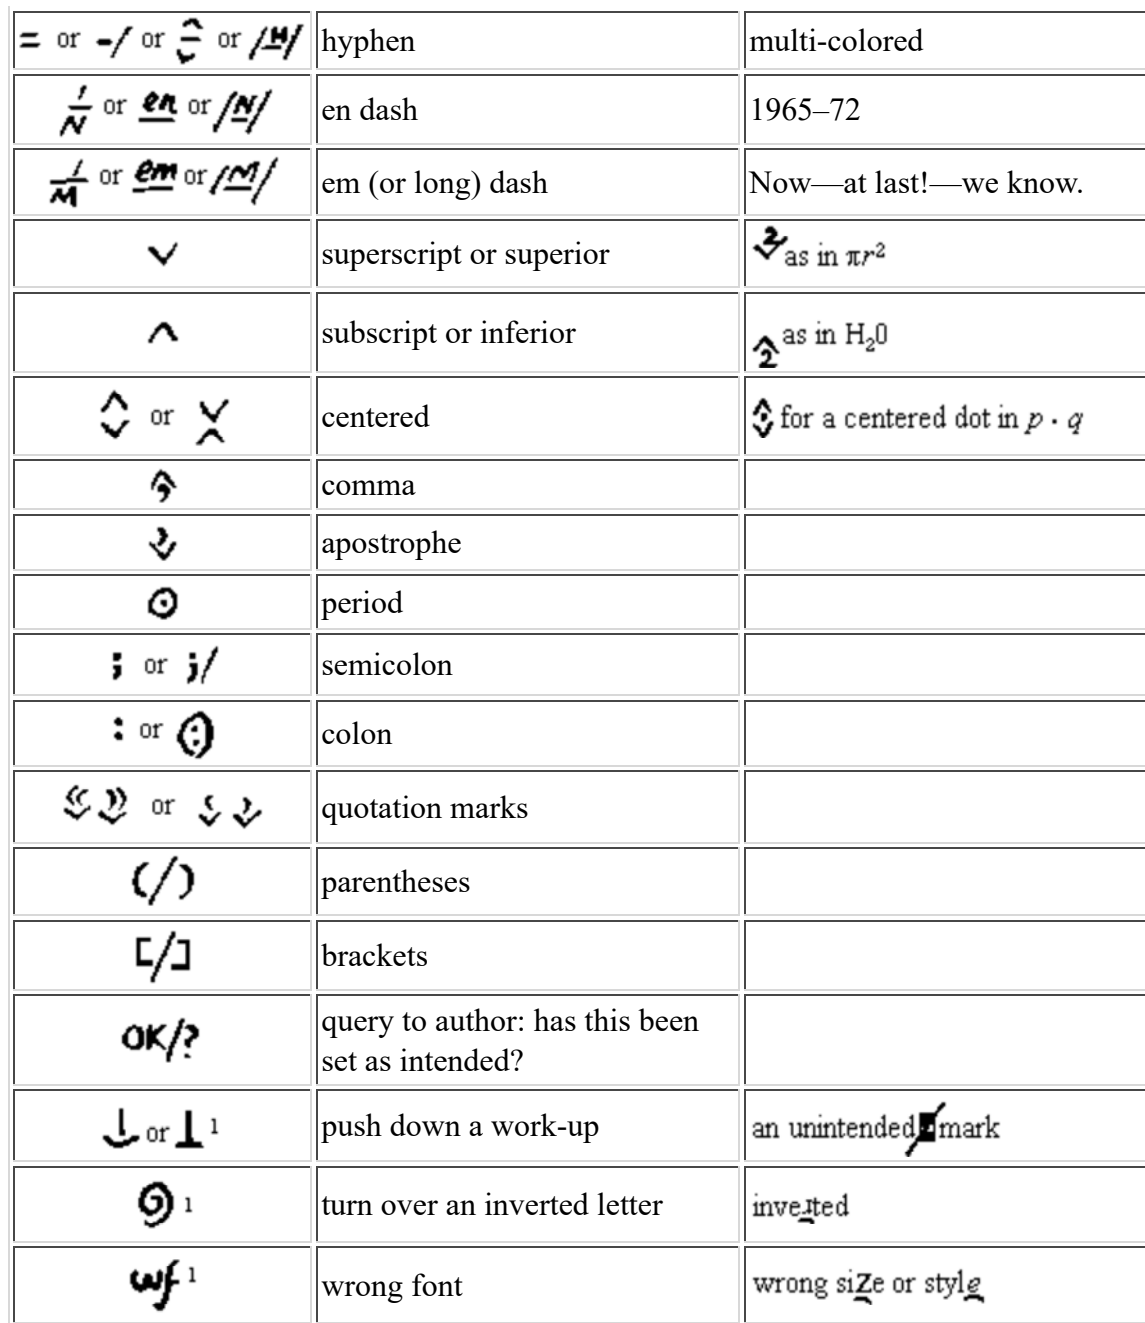 = or -/ or = or /H/ hyphen multi-colored
1/N or en or /N/ en dash 1965–72
1/M or em or /M/ em (or long) dash Now—at last!—we know.
∨ superscript or superior 2 as in πr²
∧ subscript or inferior 2 as in H₂0
or centered for a centered dot in p · q
, comma
apostrophe
⊙ period
; or ;/ semicolon
: or : colon
“ ” or ‘ ’ quotation marks
(/) parentheses
[/] brackets
OK/? query to author: has this been
set as intended?
or ⊥ 1 push down a work-up an unintended mark
1 turn over an inverted letter inverted
wf 1 wrong font wrong size or style